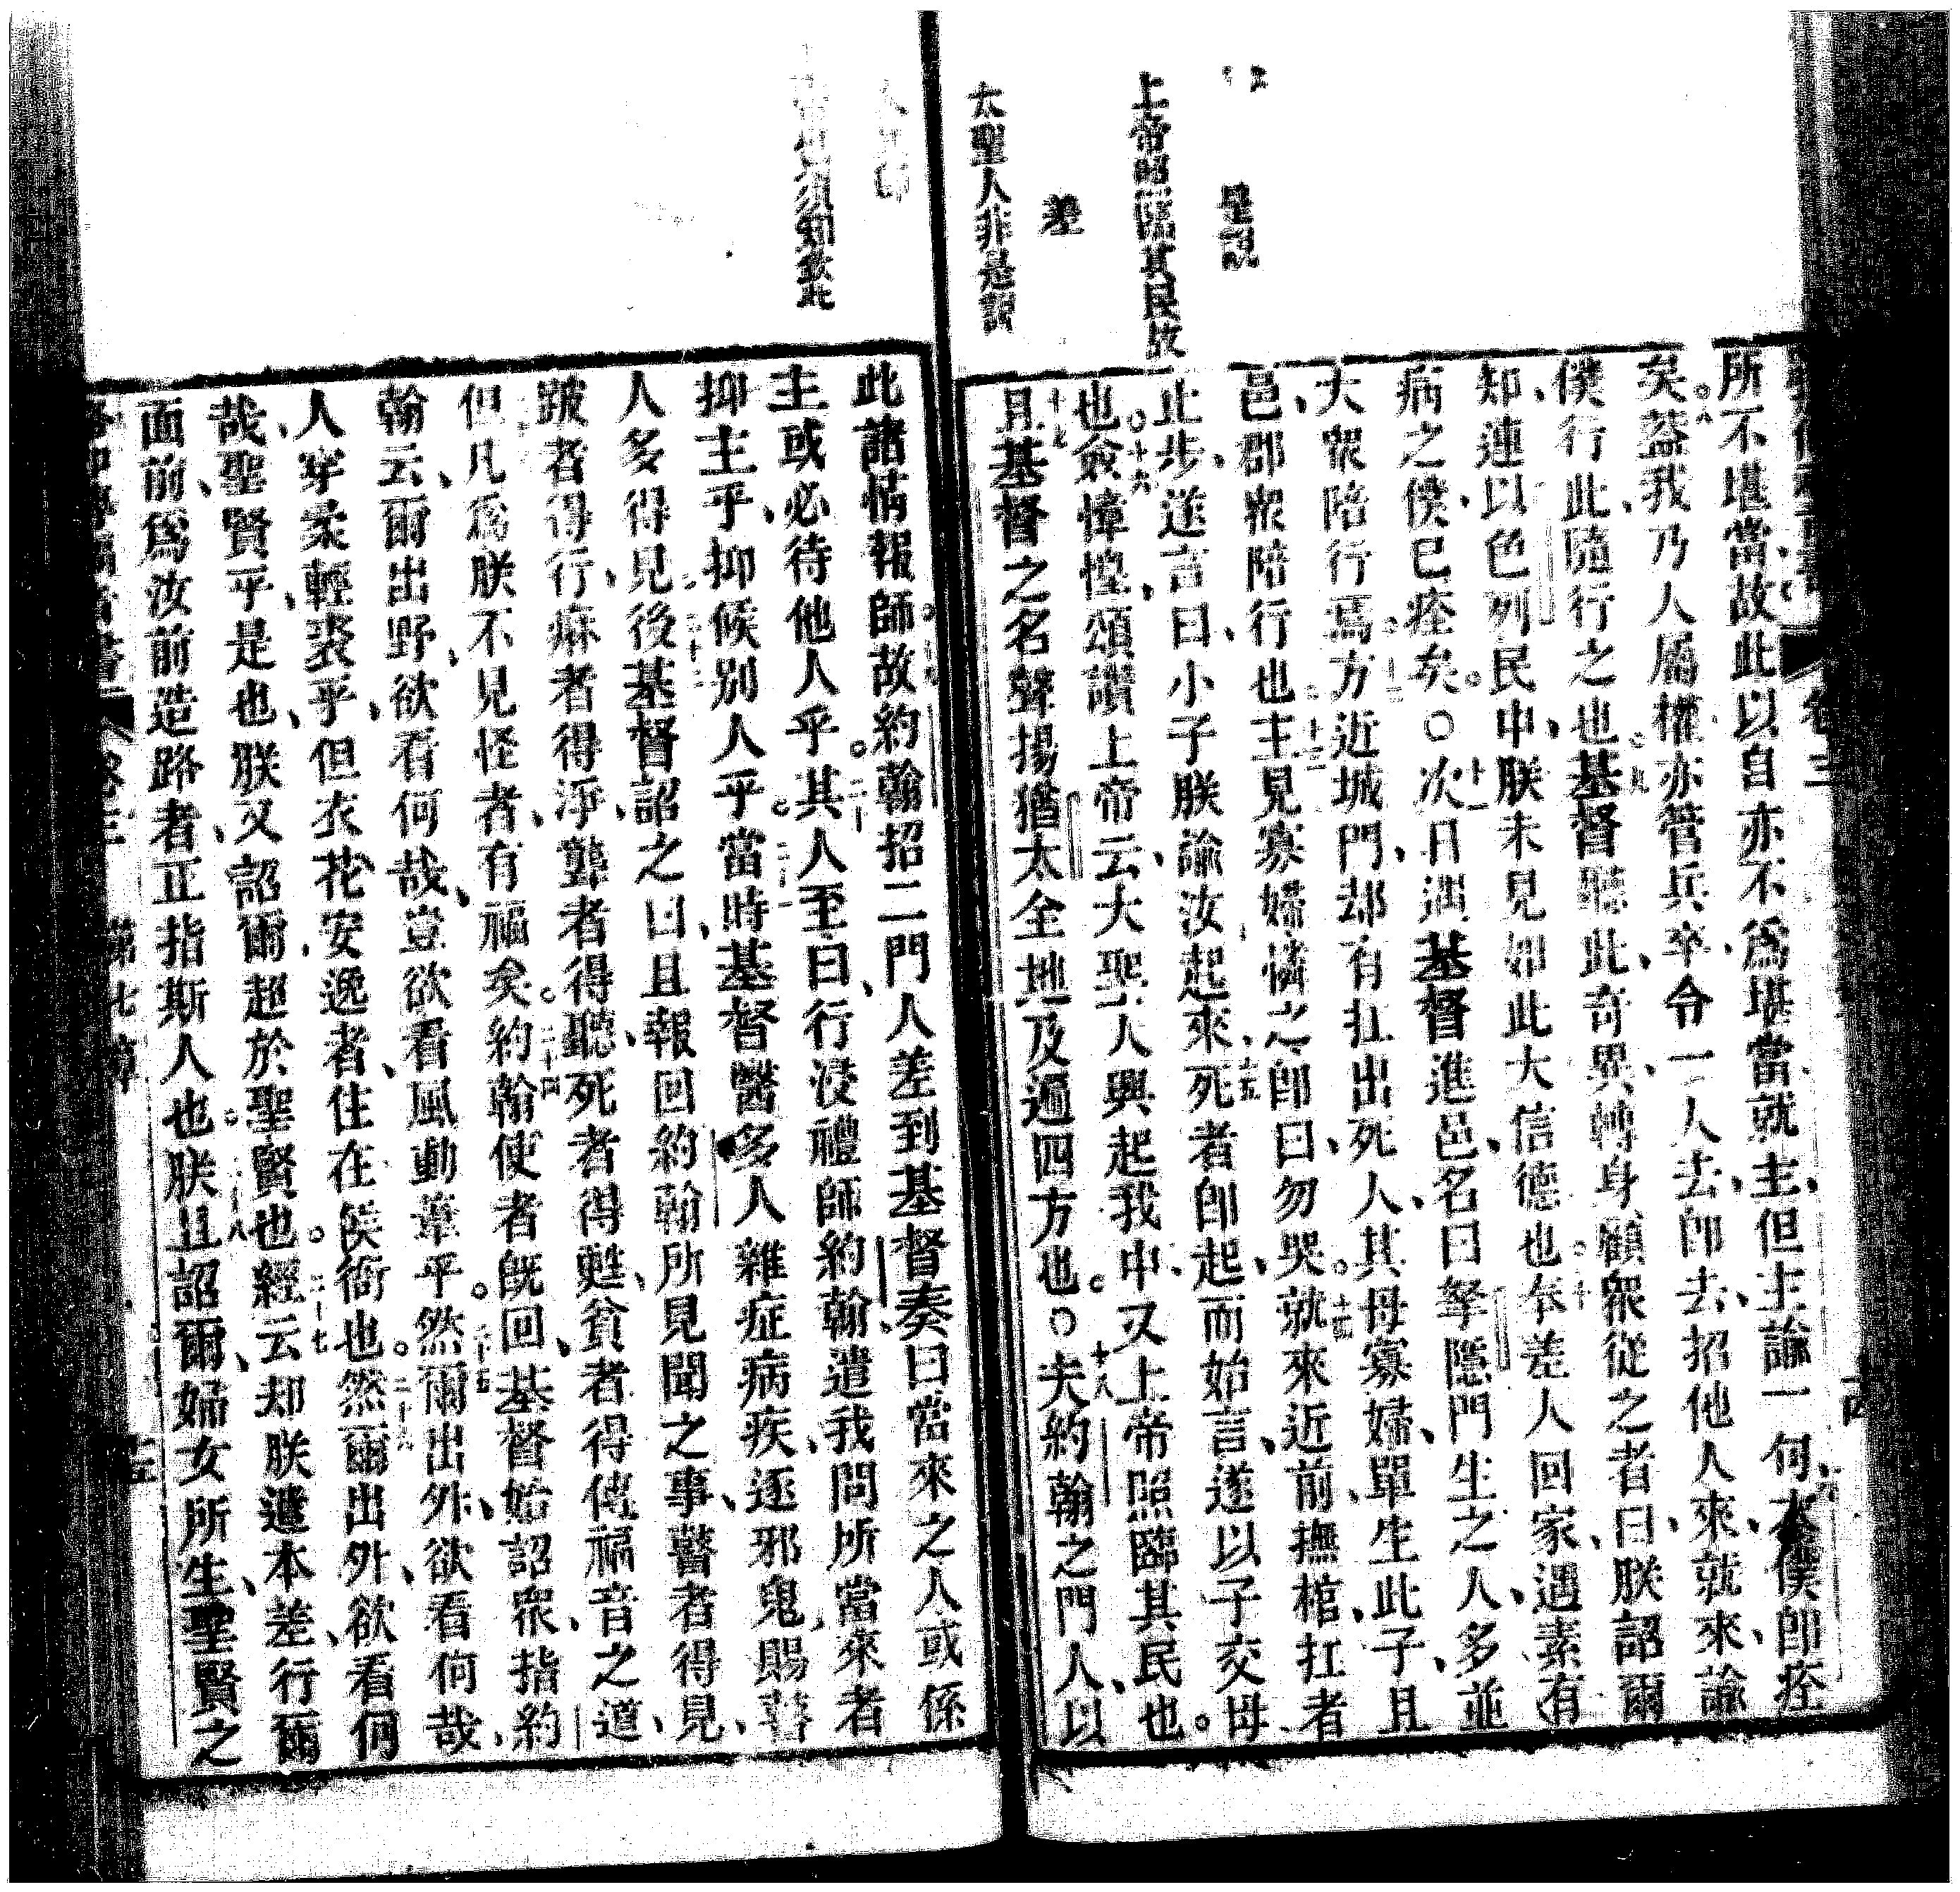 是說
上帝照臨其民故
差
大聖人非是說
所不堪當、故此以自亦不爲堪當就主、但主諭一句、本僕卽痊
矣。八蓋我乃人屬權、亦管兵卒、令一人去、卽去、招他人來、就來、諭
僕行此、隨行之也。九基督聽此、奇異、轉身、顧衆從之者曰、朕詔爾
知、連以色列民中、朕未見如此大信德也。十奉差人回家、遇素有
病之僕、已痊矣。○十一次日遇基督進邑、名曰拏隱、門生之人、多並
大衆陪行焉。十二方近城門、却有扛出死人、其母寡婦、單生此子、且
邑、郡衆陪行也。十三主見寡婦、憐之、卽曰、勿哭。十四就來近前、撫棺、扛者
止步、遂言曰、小子、朕諭汝起來。十五死者卽起、而始言、遂以子交母
也。十六僉慞惶、頌讃上帝云、大聖人興起我中、又上帝照臨其民也。
十七且基督之名聲揚猶太全地、及遍四方也。○十八夫約翰之門人、以
此諸情報師、故約翰招二門人、差到基督、奏曰、當來之人、或係
主、或必待他人乎。二十其人至曰、行浸禮師約翰、遣我問、所當來者
抑主乎、抑候別人乎。二十一當時基督醫多人雜症病疾、逐邪鬼、賜瞽
人多得見。二十二後基督詔之曰、且報回約翰、所見聞之事、瞽者得見、
跛者得行、痳者得淨、聾者得聽、死者得甦、貧者得傳福音之道、
但凡爲朕不見怪者、有福矣。二十四約翰使者旣回、基督始詔衆、指約
翰云、爾出野、欲看何哉、豈欲看風動葦乎。二十五然爾出外、欲看何哉、
人穿柔輕裘乎、但衣花、安逸者、住在侯衙也。二十六然爾出外、欲看何
哉、聖賢乎、是也、朕又詔爾、超於聖賢也。二十七經云、却朕遣本差、行爾
面前、爲汝前造路者、正指斯人也。二十八朕且詔爾、婦女所生、聖賢之
第七章